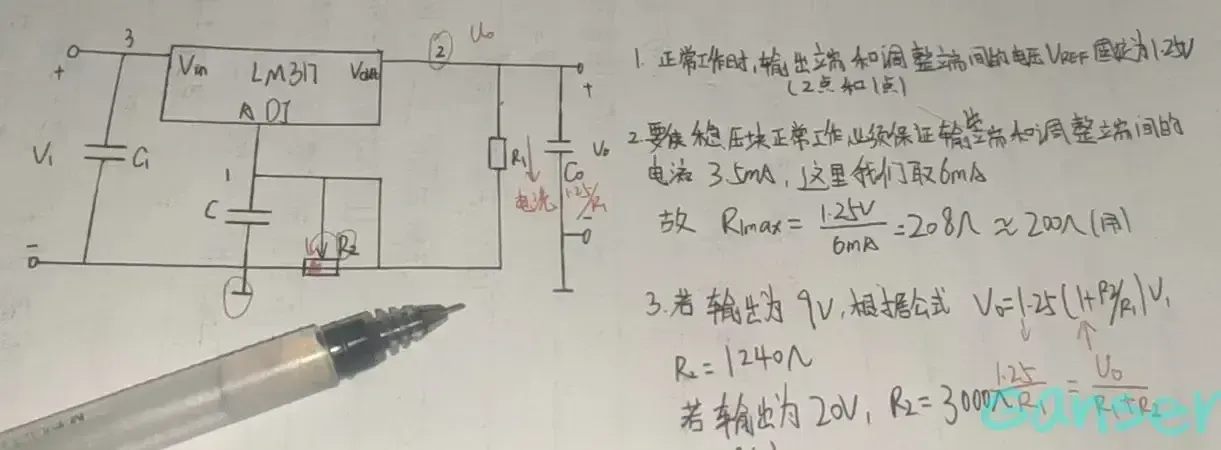 3
Vin LM317 Vout
ADJ
② U₀
+
V₁ C₁
1
C
R₂
R₁
电流
1.25/R₁
C₀
V₀
+
-
-
1. 正常工作时,输出端和调整端间的电压VREF固定为1.25V
(2点和1点)
2.要使稳压块正常工作必须保证输出端和调整端间的
电流 3.5mA,这里我们取6mA
故 R₁max = 1.25V/6mA = 208Ω ≈ 200Ω(用)
3.若输出为 9V,根据公式 V₀=1.25(1+R₂/R₁)V,
R₂ = 1240Ω
若输出为20V, R₂ = 3000Ω
1.25/R₁ = U₀/(R₁+R₂)
Ganser